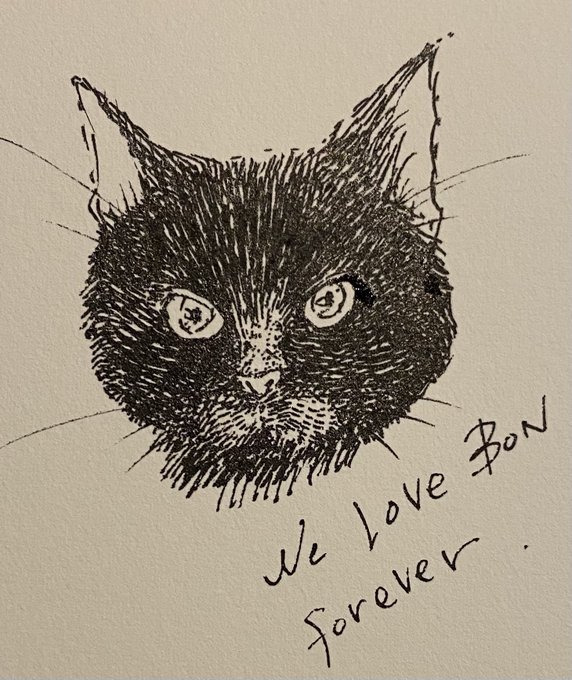 We Love BoN
forever.